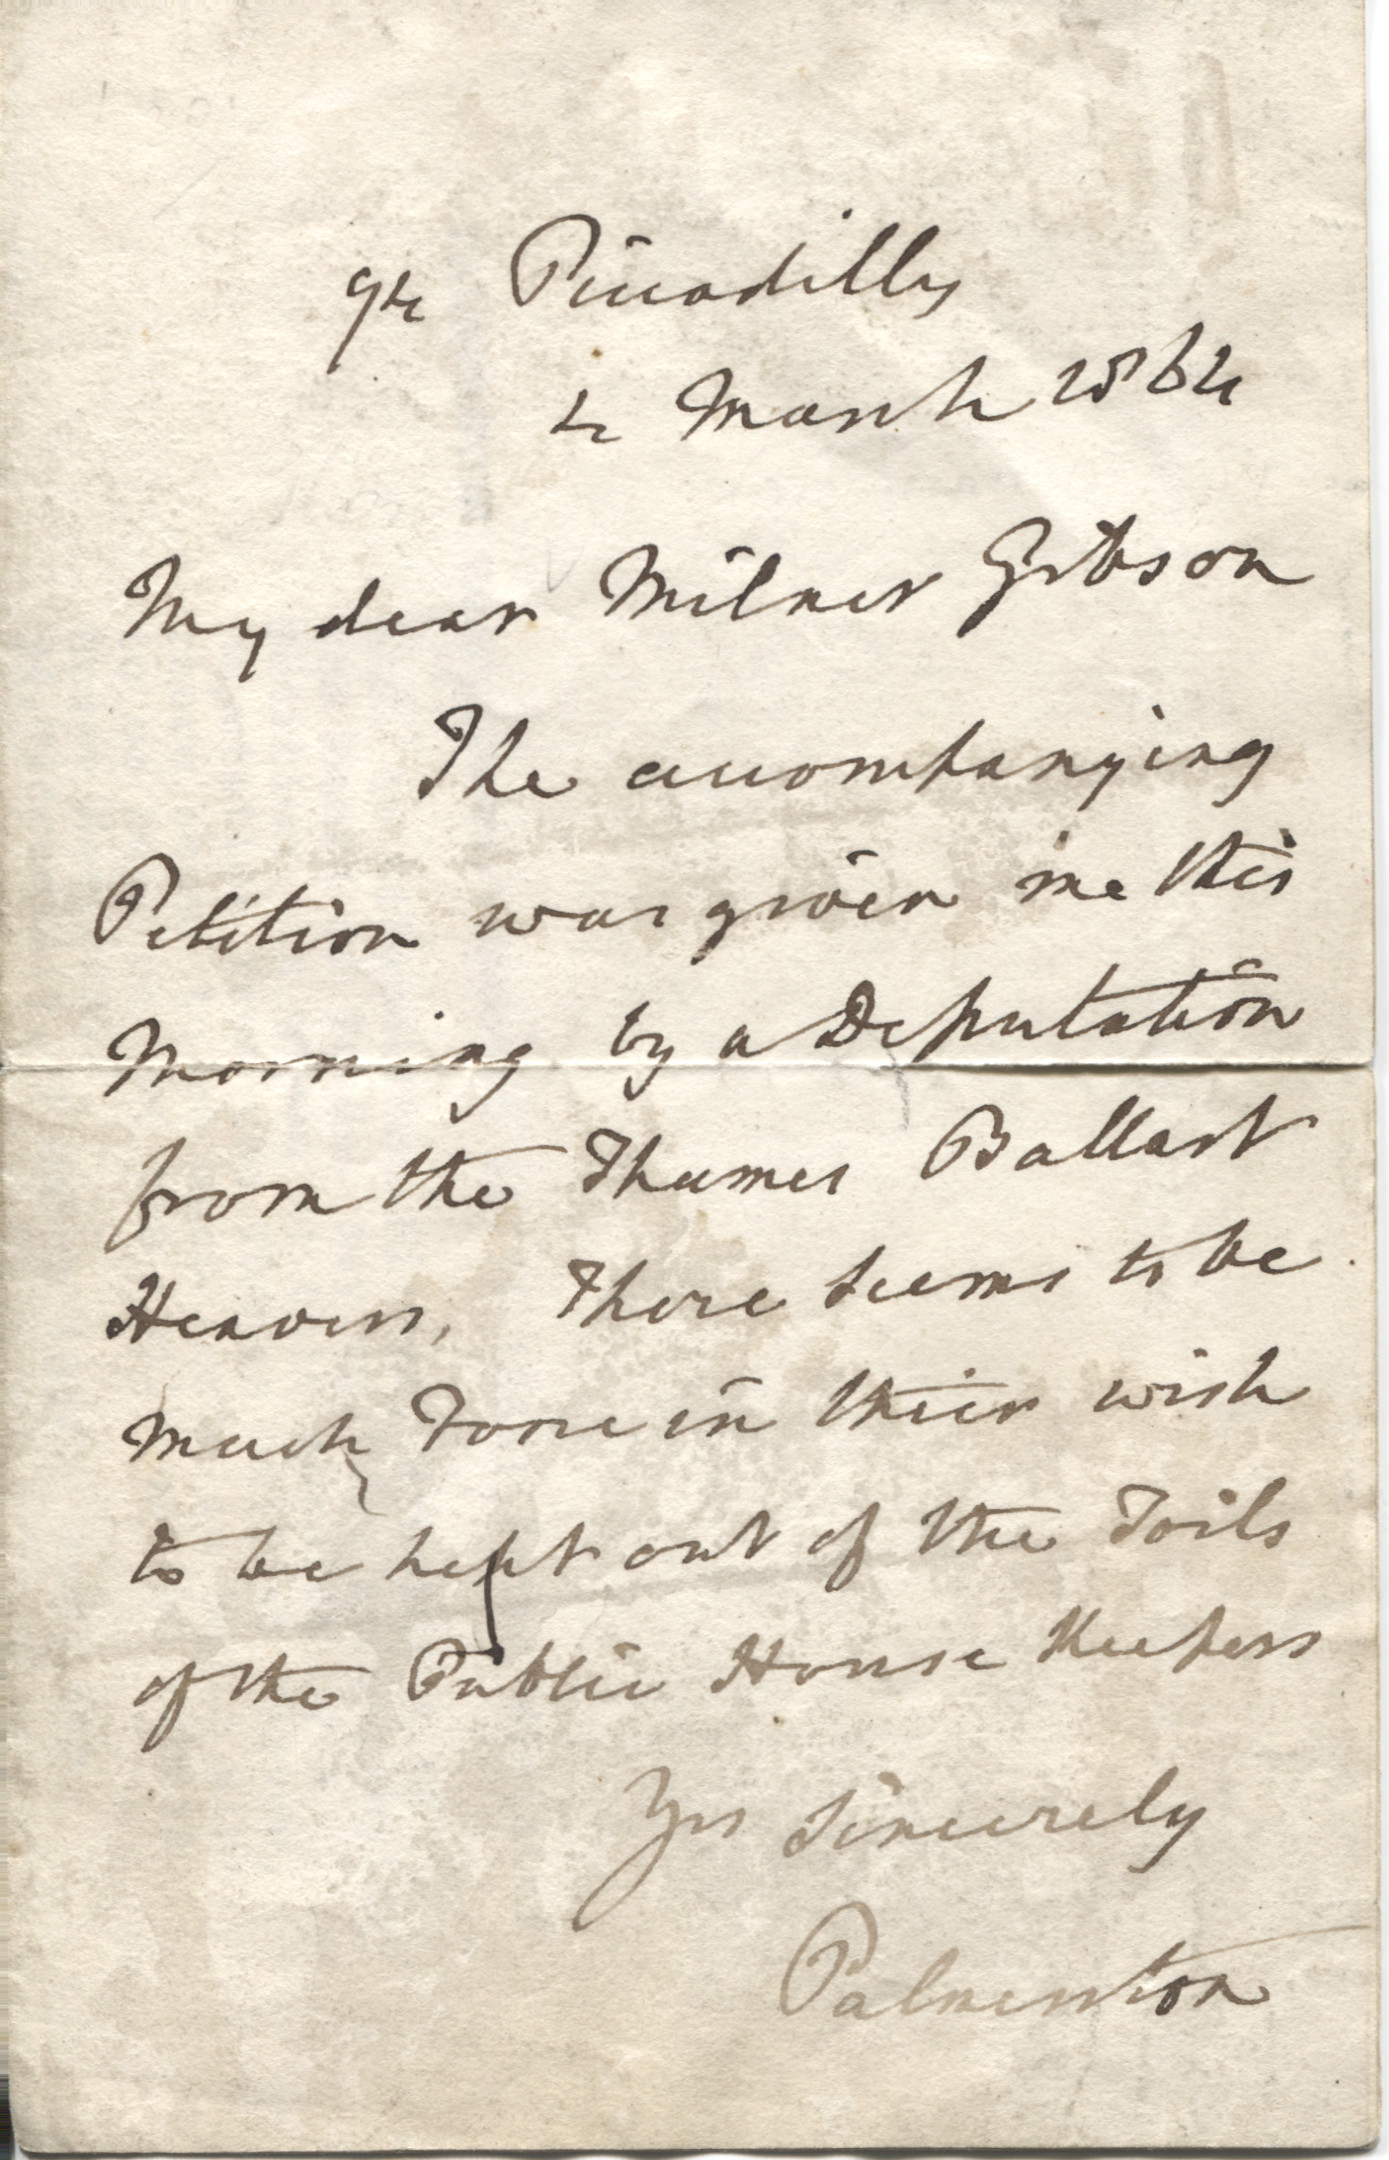 94 Piccadilly
4 March 1864
My dear Milner Gibson
The accompanying
Petition was given me this
Morning by a Deputation
from the Thames Ballast
Heavers, There seems to be
much Force in their wish
to be kept out of the Toils
of the Public House Keepers
Yrs sincerely
Palmerston